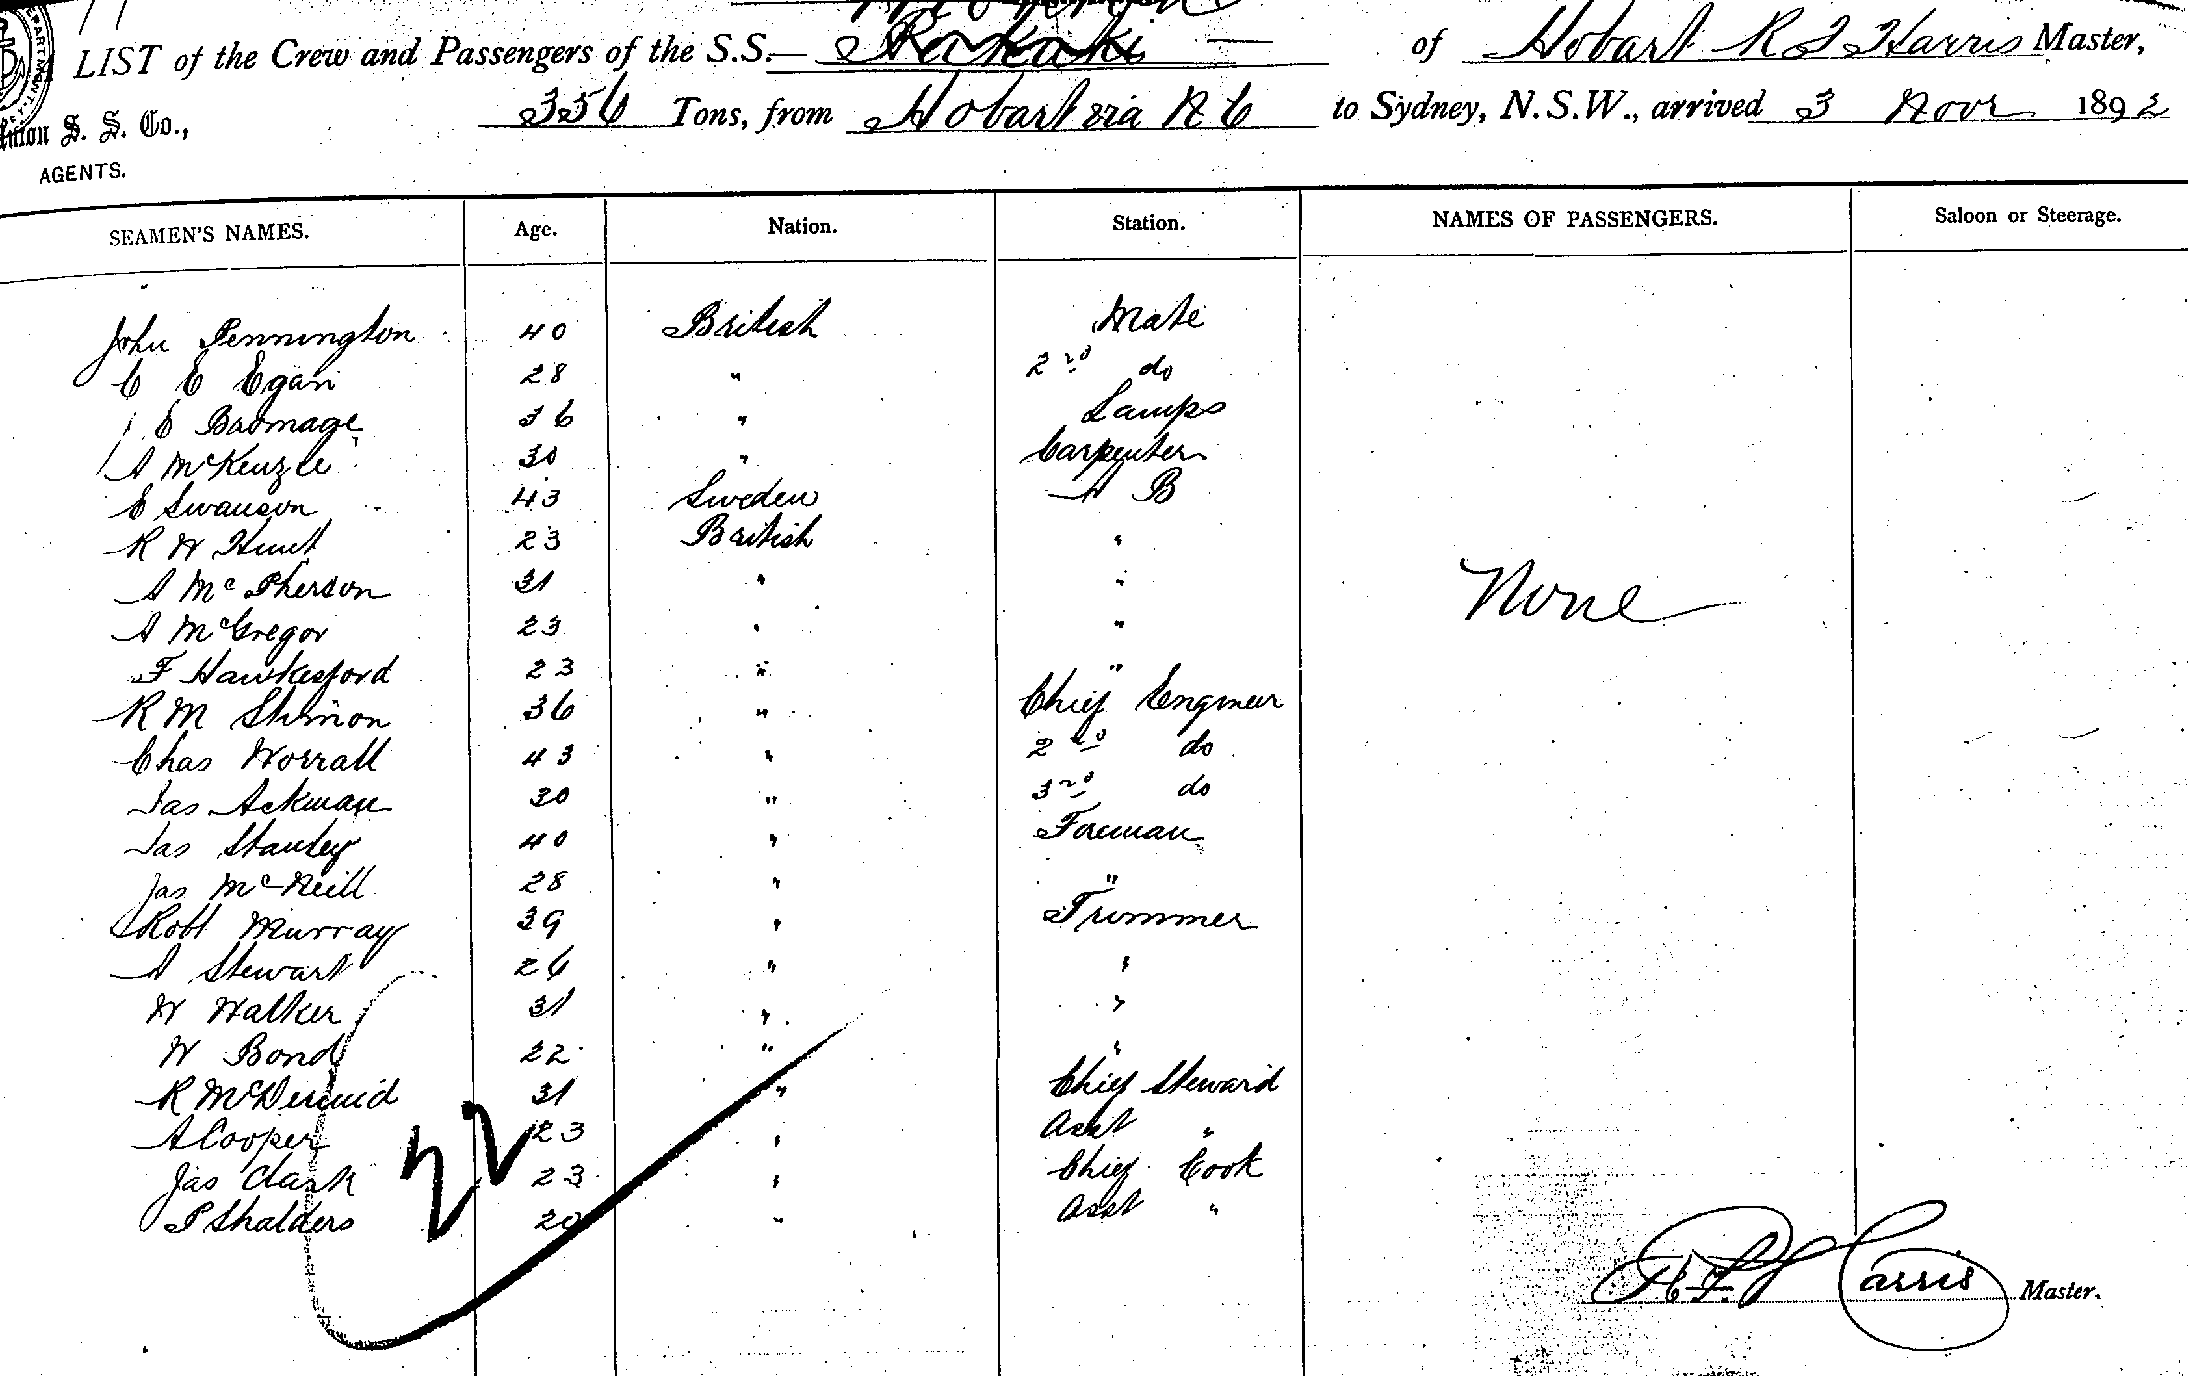 LIST of the Crew and Passengers of the S.S. of Hobart R F Harris Master,
356 Tons, from Hobart via N C to Sydney, N.S.W., arrived 3 Novr 1892
S. S. Co.,
AGENTS.
SEAMEN'S NAMES. Age. Nation. Station. NAMES OF PASSENGERS. Saloon or Steerage.
John Pennington 40 British Mate
C E Egan 28 " 2nd do
E Badmage 36 " Lamps
A McKenzie 30 " Carpenter
E Swanson 43 Sweden A B
R W Hunt 23 British "
A McPherson 31 " "
A McGregor 23 " "
F Hawkesford 23 " "
R M Shinon 36 " Chief Engineer
Chas Worrall 43 " 2nd do
Jas Ackman 30 " 3rd do
Jas Stanley 40 " Foreman
Jas McNeill 28 " "
Robt Murray 39 " Trimmer
A Stewart 26 " "
W Walker 31 " "
W Bond 22 " "
R McDermid 31 " Chief Steward
A Cooper 23 " Asst "
Jas Clark 23 " Chief Cook
P Shalders 20 " Asst "
None
22
R F Harris Master.